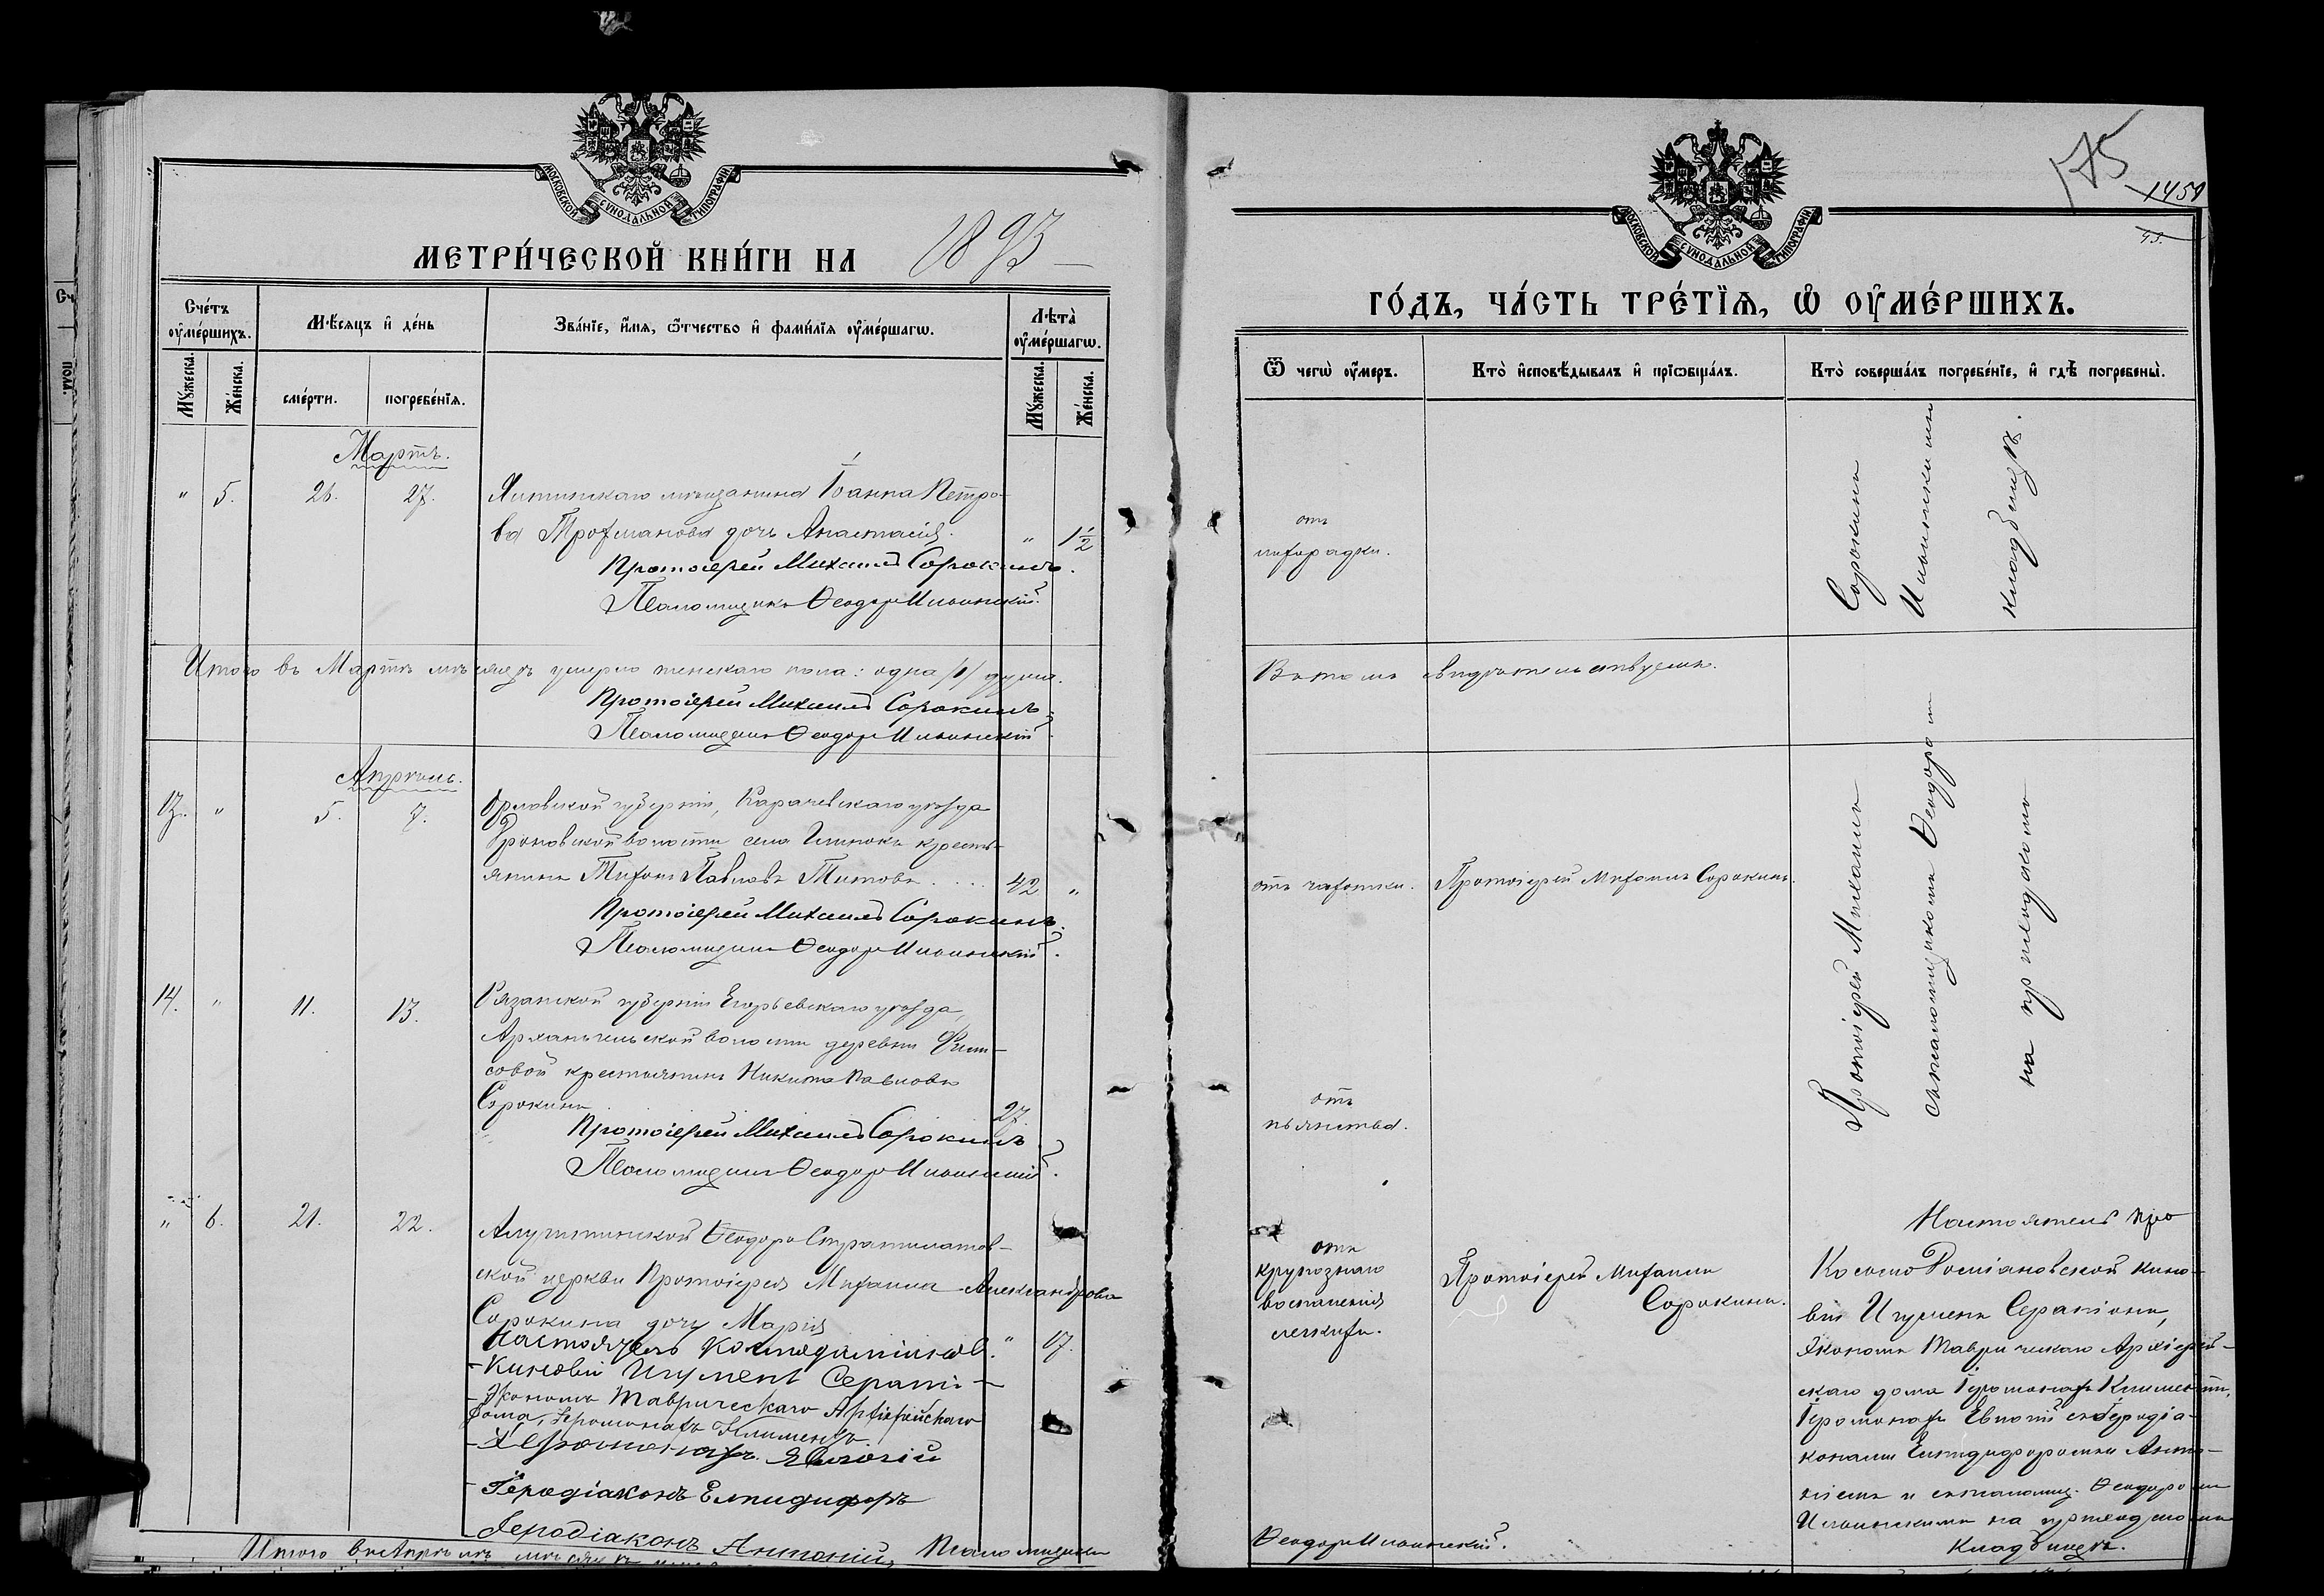 МОСКОВСКОЙ СУНОДАЛЬНОЙ ТИПОГРАФІИ
МЕТРИ́ЧЕСКОЙ КНИ́ГИ НА 1893
Сче́тъ ᲂу҆ме́ршихъ.
Мѣ́сяцъ и҆ де́нь
Зва́нїе, и҆́мя, ѻ҆́тчество и҆ фами́лїя ᲂу҆ме́ршагѡ.
Лѣ́та ᲂу҆ме́ршагѡ.
Мꙋ́жеска.
Же́нска.
сме́рти.
погребе́нїя.
Мꙋ́жеска.
Же́нска.
Мартъ.
" 5. 26. 27.
мѣщанина Іоанна Петро-
ва дочь Анастасія. " 1 1/2
Протоіерей Михаилъ Сорокинъ.
Псаломщикъ Ѳеодоръ Ильинскій.
Итого въ Мартѣ мѣсяцѣ умерло женскаго пола: одна /1/ душа.
Протоіерей Михаилъ Сорокинъ.
Псаломщикъ Ѳеодоръ Ильинскій
Апрѣль.
13. " 5. 7.
Орловской губерніи, Карачевскаго уѣзда
волости села Глинокъ кресть-
янинъ Тихонъ Павловъ Титовъ.... 42 "
Протоіерей Михаилъ Сорокинъ.
Псаломщикъ Ѳеодоръ Ильинскій.
14. " 11. 13.
Рязанской губерніи Егорьевскаго уѣзда,
Архангельской волости деревни
совой крестьянинъ Никита Павловъ
Сорокинъ 27.
Протоіерей Михаилъ Сорокинъ.
Псаломщикъ Ѳеодоръ Ильинскій.
" 6. 21. 22.
Алуштинской Ѳеодоро-Стратилатов-
ской церкви Протоіерея Михаила Александрова
Сорокина дочь Марія " 17.
Настоятель Космодаміанов.
- Киновіи Игуменъ Серапі-
- Экономъ Таврическаго Архіерейскаго
дома, Іеромонахъ Климентъ
- Іеромонахъ Евлогій
- Іеродіаконъ Елпидифоръ
- Іеродіаконъ Антоній, Псаломщикъ
Итого въ Апрѣлѣ мѣсяцѣ
175
1459
МОСКОВСКОЙ СУНОДАЛЬНОЙ ТИПОГРАФІИ
ГО́ДЪ, ЧА́СТЬ ТРЕ́ТЇѦ, Ѡ҆ ОУ҆МЕ́РШИХЪ.
Ѿ чегѡ̀ ᲂу҆́меръ.
Кто̀ и҆сповѣ́дывалъ и҆ прїѡбща́лъ.
Кто̀ соверша́лъ погребе́нїе, и҆ гдѣ̀ погребены̀.
отъ
лихорадки.
Въ томъ свидѣтельствуемъ.
отъ чахотки.
Протоіерей Михаилъ Сорокинъ.
отъ
пьянства.
Протоіерей Михаилъ Сорокинъ
съ псаломщикомъ Ѳеодоромъ Ильинскимъ
на приходскомъ кладбищѣ.
отъ
крупознаго
воспаленія
легкихъ.
Протоіерей Михаилъ
Сорокинъ.
Настоятель
Космо-Даміановской кино-
віи Игуменъ Серапіонъ,
Экономъ Таврическаго Архіерей-
скаго дома Іеромонахъ Климентъ,
Іеромонахъ Евлогій съ Іеродіа-
конами Елпидифоромъ и Анто-
ніемъ и съ псаломщ. Ѳеодоромъ
Ильинскимъ на приходскомъ
кладбищѣ.
Ѳеодоръ Ильинскій.